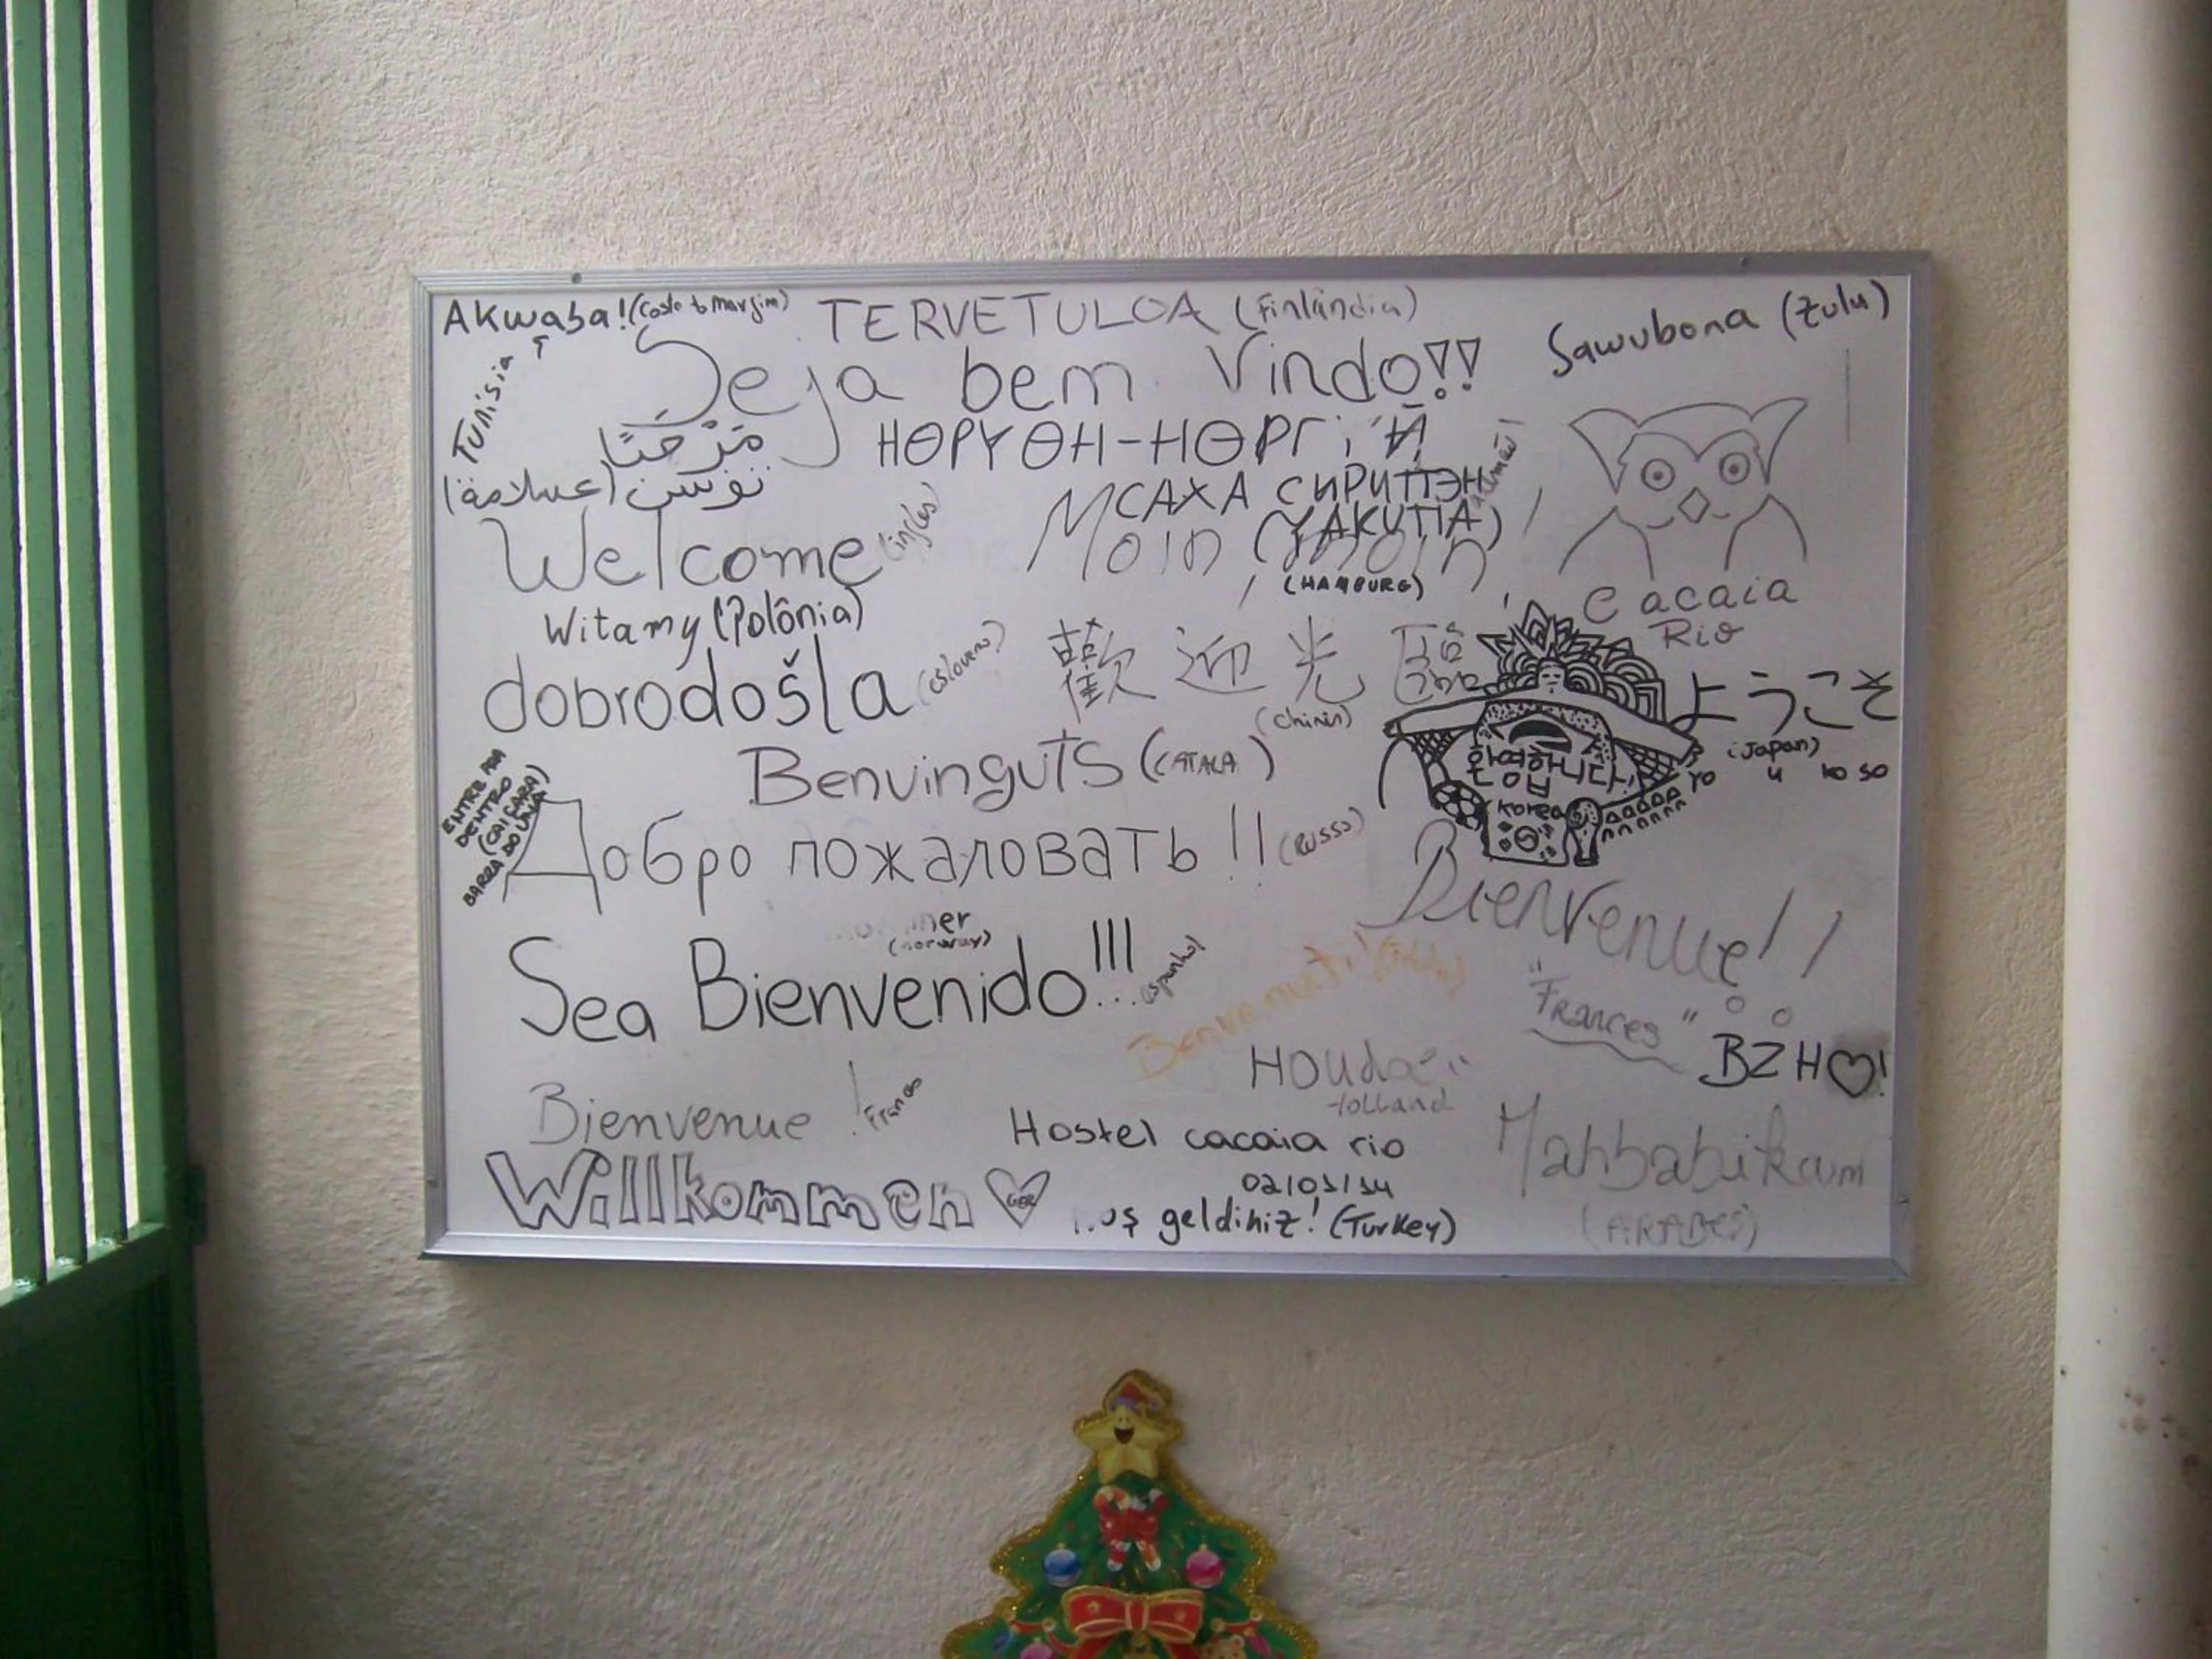 AKwaba! (Costa do Marfim)
TERVETULOA (Finlândia)
Sawubona (Zulu)
Tunisia
Seja bem Vindo!!
مَرْحَبًا
НӨРҮӨН-НӨРГҮЙ
تونس (عسلامة)
САХА СИРИТТЭН
(YAKUTIA)
Welcome (inglês)
Moin moin
(HAMBURG)
Cacaia
Rio
Witamy (Polônia)
dobrodošla (esloveno)
歡迎光臨
(chinês)
ようこそ
(Japan)
Yo u ko so
Benvinguts (CATALA)
환영합니다!
(Korea)
ENTRE PRA
DENTRO
(CAIÇARA)
BARRA DO UNA
Добро пожаловать!! (RUSSO)
Bienvenue!!
"Frances"
(norway)
Sea Bienvenido!!! (espanhol)
Benvenuti!
BZH♡!
Houdoe
Holland
Bienvenue! Frances
Hostel cacaia rio
02/01/14
Mahbabikum
(ARABES)
Willkommen GER
geldiniz! (Turkey)